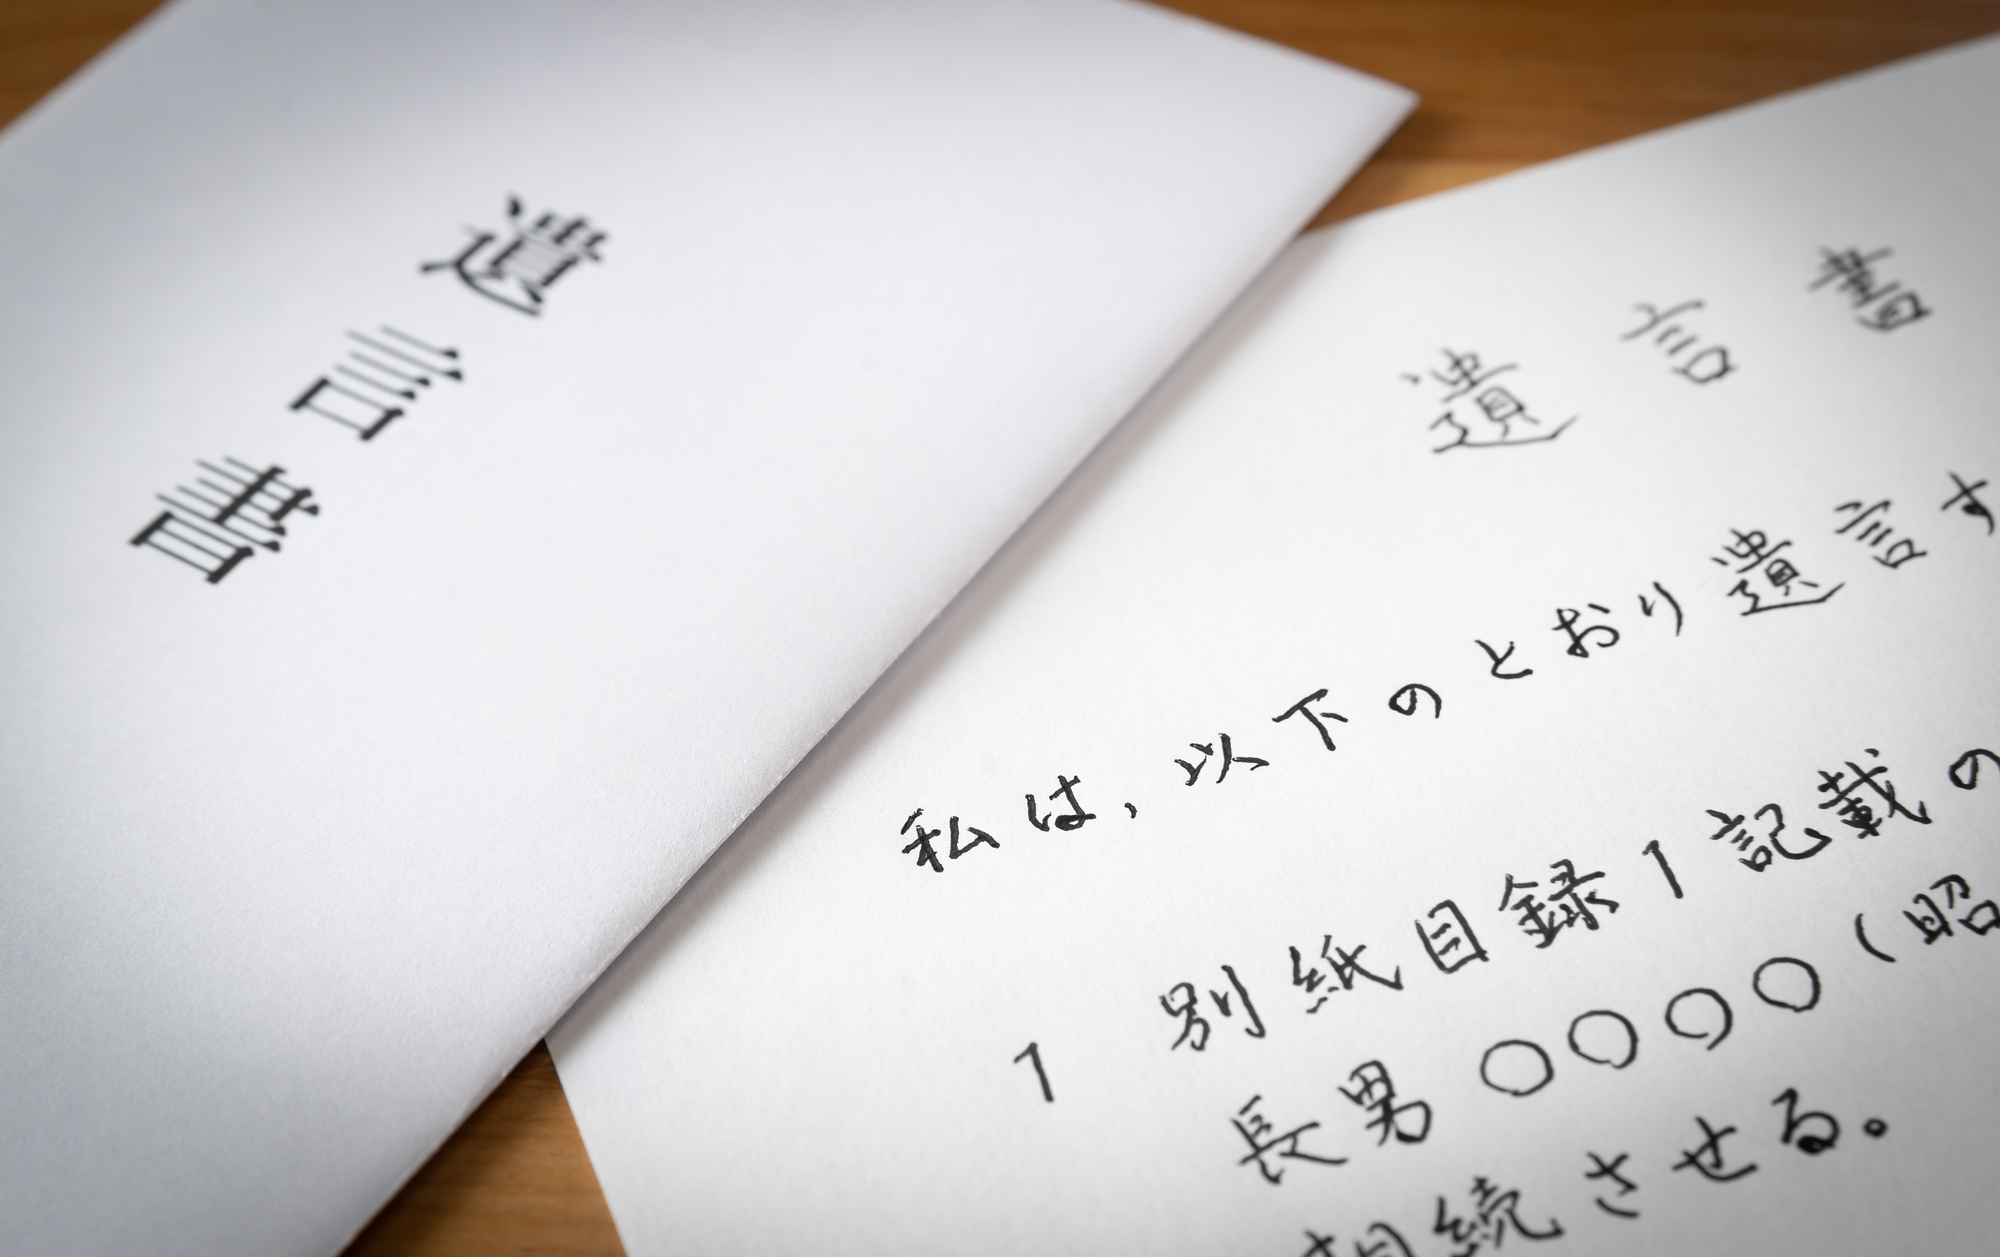 遺言書
遺言書
私は，以下のとおり遺言す
1 別紙目録1記載の
長男〇〇〇〇（昭
相続させる。